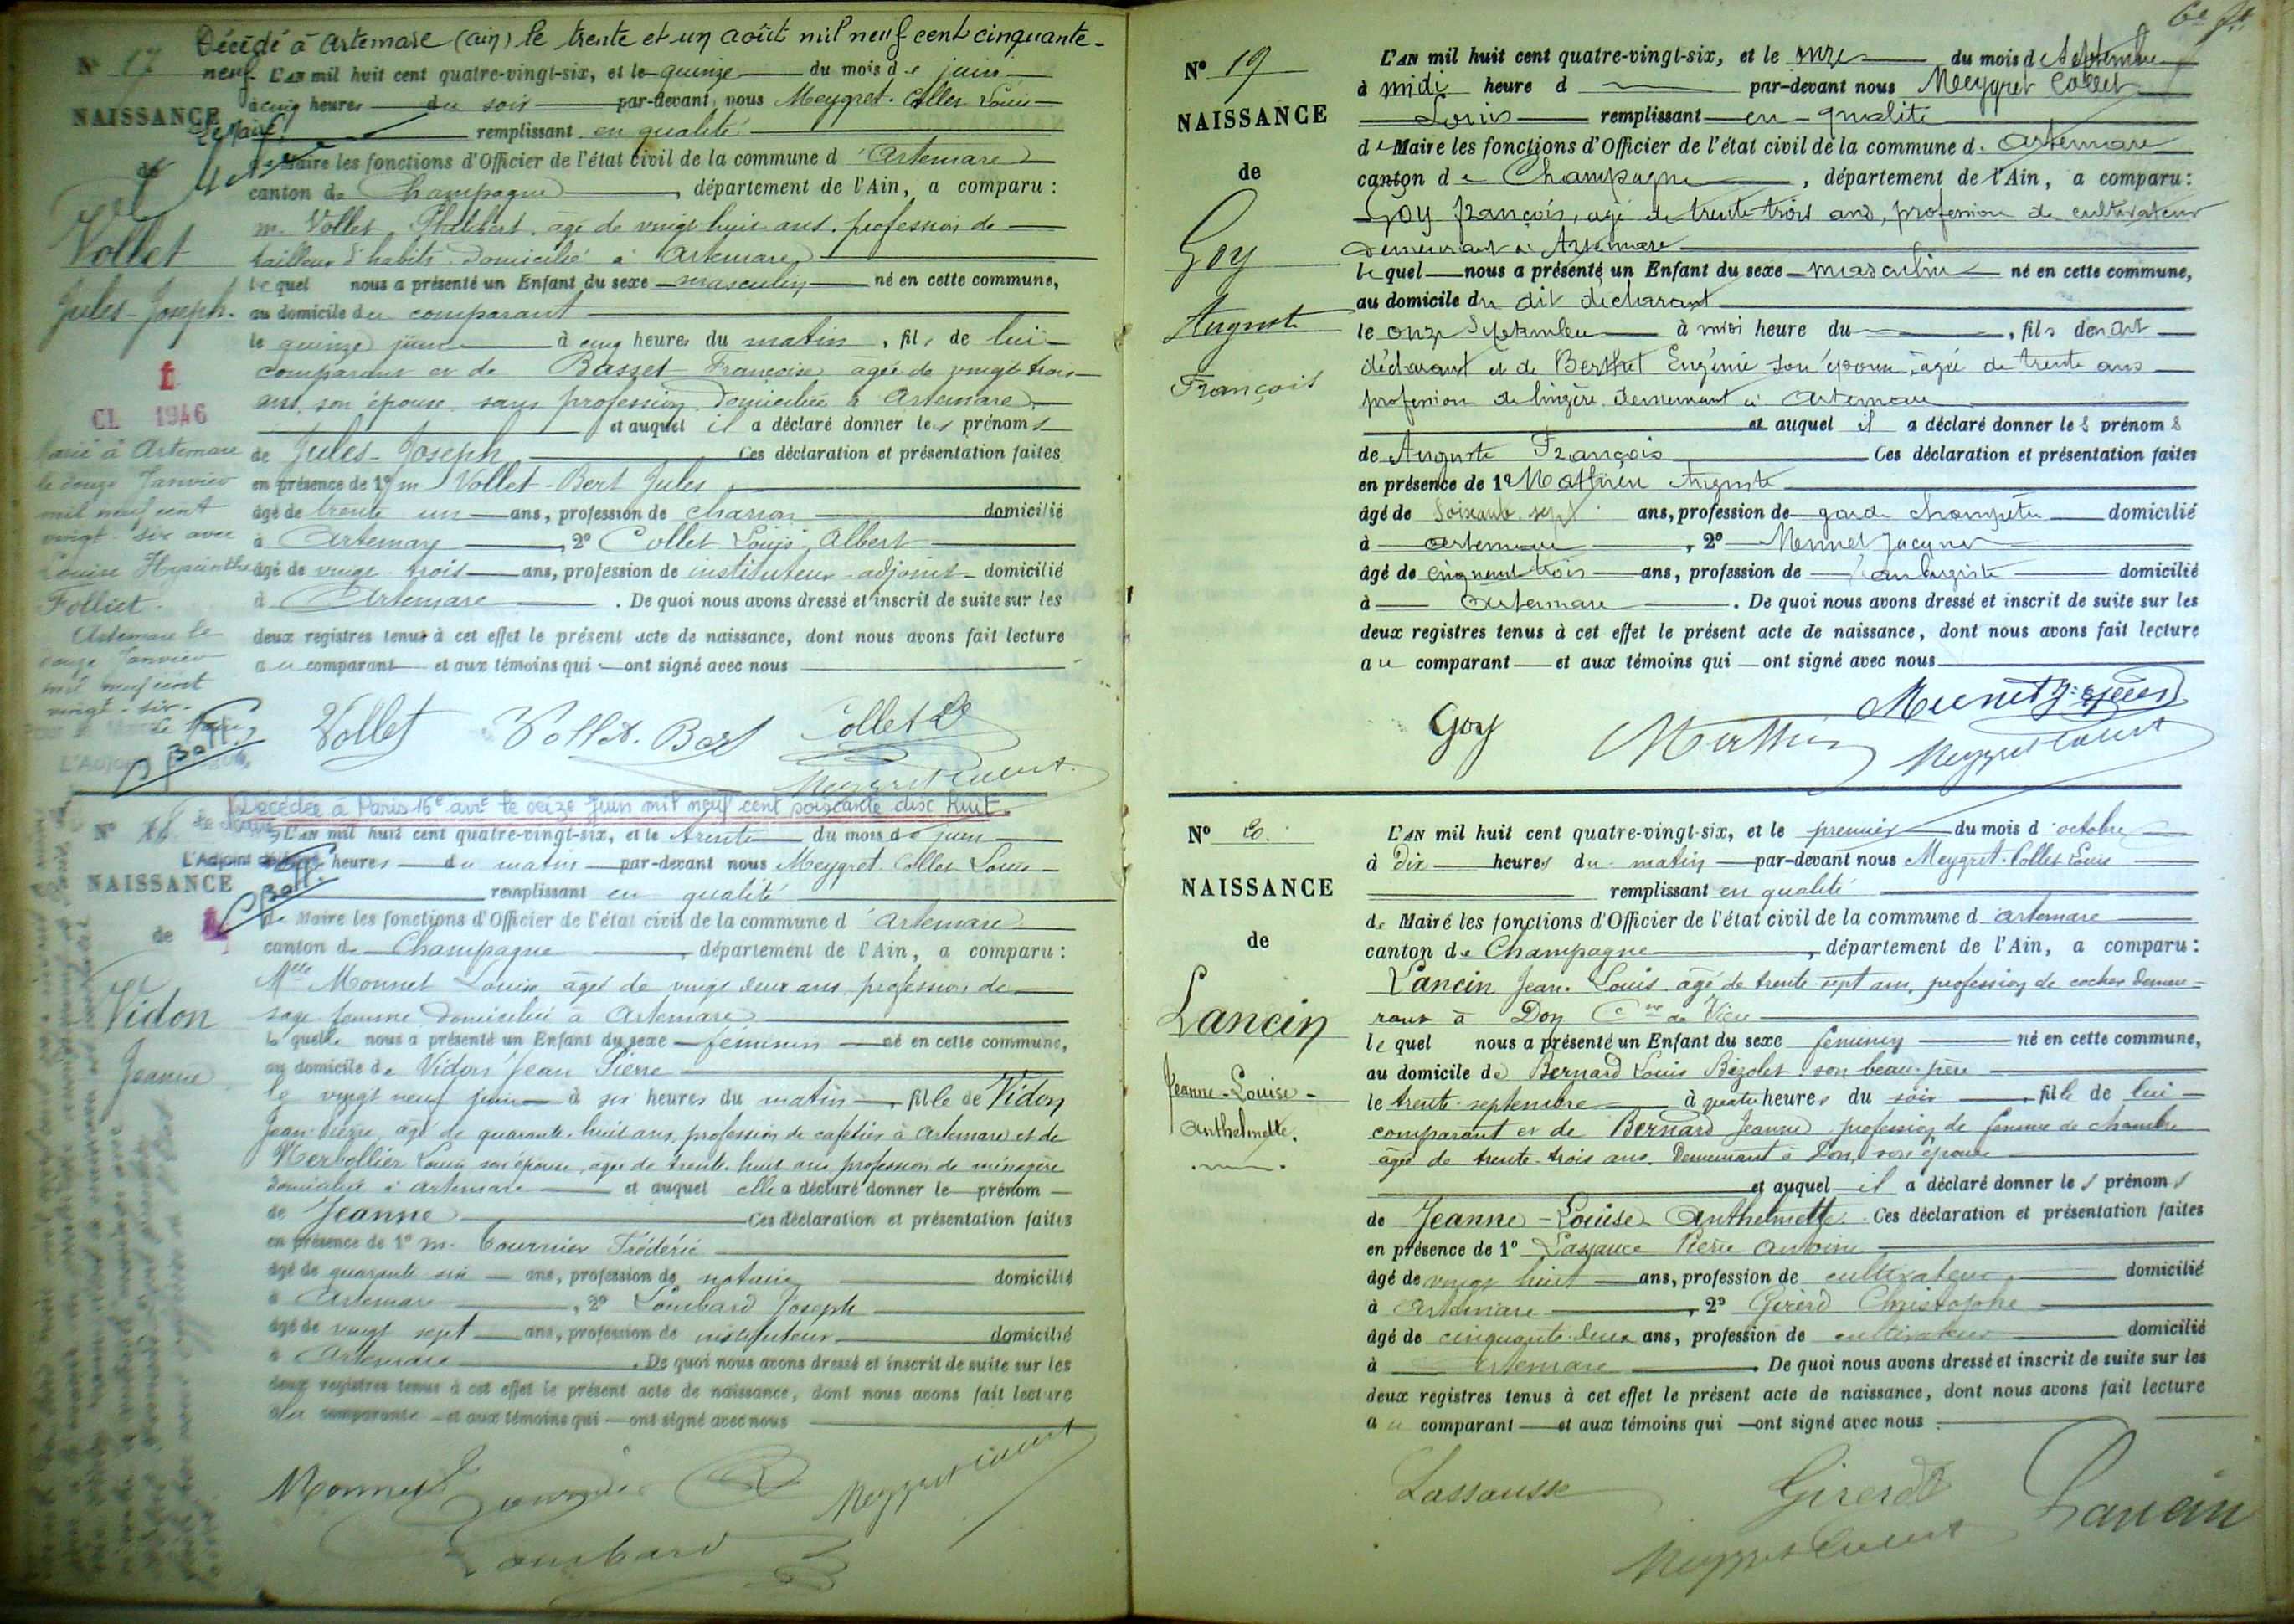 Décédé à Artemare (ain) le trente et un août mil neuf cent cinquante-
neuf
Le Maire
N° 17
NAISSANCE
de
Vollet
Jules-Joseph.
CL 1946
Marié à Artemare
le douze Janvier
mil neuf cent
vingt-six avec
Louise Hyacinthe
Folliet.
Artemare le
douze Janvier
mil neuf cent
vingt-six-
L'AN mil huit cent quatre-vingt-six, et le quinze du mois de juin
à cinq heures du soir par-devant nous Meygret-Collet Louis
remplissant en qualité
de Maire les fonctions d'Officier de l'état civil de la commune d'Artemare
canton de Champagne, département de l'Ain, a comparu:
m. Vollet Philibert, agé de vingt huit ans, profession de
tailleur d'habits domicilié à Artemare
lequel nous a présenté un Enfant du sexe masculin né en cette commune,
au domicile du comparant
le quinze juin à cinq heures du matin, fils de lui
comparant et de Basset Françoise agée de vingt trois
ans, son épouse sans profession domiciliée à Artemare
et auquel il a déclaré donner les prénoms
de Jules-Joseph Ces déclaration et présentation faites
en présence de 1° m Vollet-Bert Jules
âgé de trente un ans, profession de charron domicilié
à Artemare, 2° Collet Louis Albert
âgé de vingt trois ans, profession de instituteur-adjoint domicilié
à Artemare. De quoi nous avons dressé et inscrit de suite sur les
deux registres tenus à cet effet le présent acte de naissance, dont nous avons fait lecture
au comparant et aux témoins qui ont signé avec nous
Vollet Vollet-Bert Collet
Meygret Collet
Décédée à Paris 16e arrt le seize Juin mil neuf cent soixante dix huit.
N° 18
NAISSANCE
de
Vidon
Jeanne
L'AN mil huit cent quatre-vingt-six, et le trente du mois de juin
heures du matin par-devant nous Meygret Collet Louis
remplissant en qualité
de Maire les fonctions d'Officier de l'état civil de la commune d'Artemare
canton de Champagne, département de l'Ain, a comparu:
Melle Monnet Louise âgée de vingt deux ans, profession de
sage-femme domiciliée à Artemare
laquelle nous a présenté un Enfant du sexe féminin né en cette commune,
au domicile de Vidon Jean Pierre
le vingt neuf juin à six heures du matin, fille de Vidon
Jean Pierre, agé de quarante-huit ans, profession de cafetier à Artemare et de
Louise son épouse, agée de trente-huit ans profession de ménagère
domiciliée à Artemare et auquel elle a déclaré donner le prénom
de Jeanne Ces déclaration et présentation faites
en présence de 1° m. Tournier Frédéric
âgé de quarante six ans, profession de notaire domicilié
à Artemare, 2° Lombard Joseph
âgé de vingt sept ans, profession de instituteur domicilié
à Artemare. De quoi nous avons dressé et inscrit de suite sur les
deux registres tenus à cet effet le présent acte de naissance, dont nous avons fait lecture
comparante et aux témoins qui ont signé avec nous
Monnet Tournier Meygret Collet
Lombard
N° 19
NAISSANCE
de
Goy
Auguste
François
L'AN mil huit cent quatre-vingt-six, et le onze du mois de Septembre
à midi heure d par-devant nous Meygret Collet
Louis remplissant en qualité
de Maire les fonctions d'Officier de l'état civil de la commune d. Artemare
canton de Champagne, département de l'Ain, a comparu:
Goy françois, agé de trente trois ans, profession de cultivateur
demeurant à Artemare
lequel nous a présenté un Enfant du sexe masculin né en cette commune,
au domicile du dit déclarant
le onze Septembre à midi heure du, fils dudit
déclarant et de Berthet Eugénie son épouse agée de trente ans
profession de lingère demeurant à Artemare
et auquel il a déclaré donner les prénoms
de Auguste François Ces déclaration et présentation faites
en présence de 1° Mathieu Auguste
âgé de Soixante-sept ans, profession de garde champêtre domicilié
à Artemare, 2° Monnet
âgé de cinquante trois ans, profession de domicilié
à Artemare. De quoi nous avons dressé et inscrit de suite sur les
deux registres tenus à cet effet le présent acte de naissance, dont nous avons fait lecture
au comparant et aux témoins qui ont signé avec nous
Goy Mathieu
Meygret Collet
N° 20.
NAISSANCE
de
Lancin
Jeanne-Louise-
Anthelmette.
L'AN mil huit cent quatre-vingt-six, et le premier du mois d'octobre
à dix heures du matin par-devant nous Meygret-Collet Louis
remplissant en qualité
de Maire les fonctions d'Officier de l'état civil de la commune d'artemare
canton de Champagne, département de l'Ain, a comparu:
Lancin Jean-Louis agé de trente-sept ans, profession de cocher demeu-
rant à Don Cne de Vieu
lequel nous a présenté un Enfant du sexe féminin né en cette commune,
au domicile de Bernard Louis son beau-père
le trente septembre à quatre heures du soir, fille de lui
comparant et de Bernard Jeanne profession de femme de chambre
agée de trente-trois ans. Demeurant à Don, son épouse
et auquel il a déclaré donner les prénoms
de Jeanne-Louise Anthelmette. Ces déclaration et présentation faites
en présence de 1° Lassausse Pierre Antoine
âgé de vingt huit ans, profession de cultivateur domicilié
à Artemare, 2° Girerd Christophe
âgé de cinquante-deux ans, profession de cultivateur domicilié
à Artemare. De quoi nous avons dressé et inscrit de suite sur les
deux registres tenus à cet effet le présent acte de naissance, dont nous avons fait lecture
au comparant et aux témoins qui ont signé avec nous
Lassausse Girerd Lancin
Meygret Collet